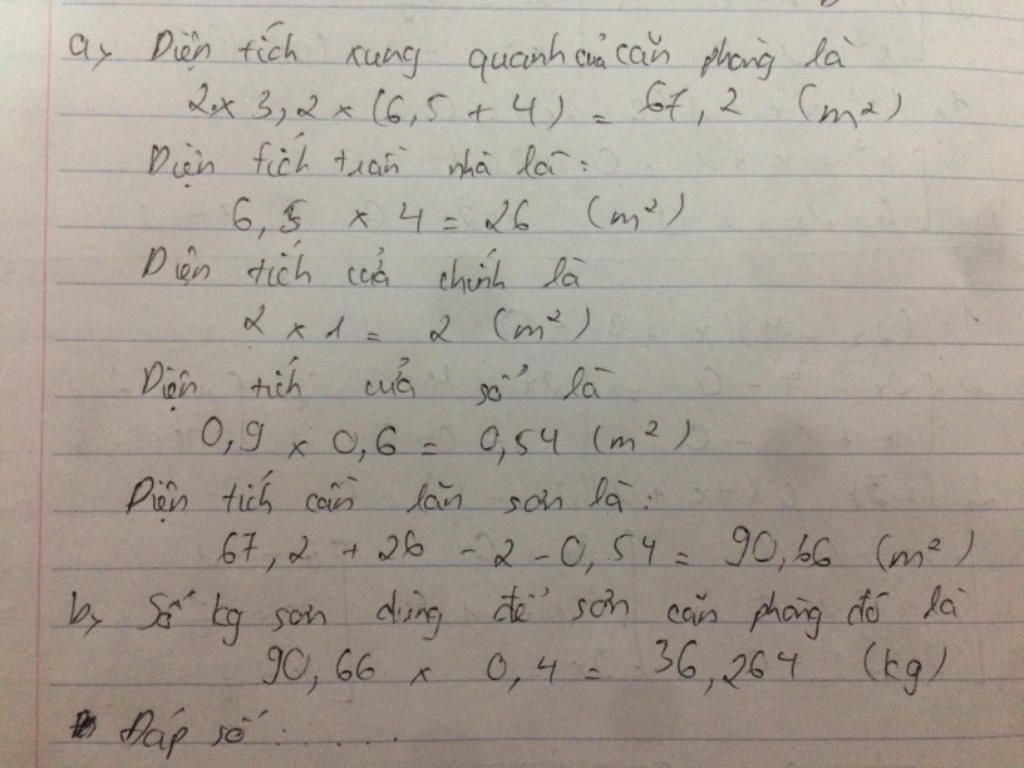 a, Diện tích xung quanh của căn phòng là
2 x 3,2 x (6,5 + 4) = 67,2 (m²)
Diện tích trần nhà là:
6,5 x 4 = 26 (m²)
Diện tích cửa chính là
2 x 1 = 2 (m²)
Diện tích cửa sổ là
0,9 x 0,6 = 0,54 (m²)
Diện tích cần lăn sơn là:
67,2 + 26 - 2 - 0,54 = 90,66 (m²)
b, Số kg sơn dùng để sơn căn phòng đó là
90,66 x 0,4 = 36,264 (kg)
Đáp số: .......